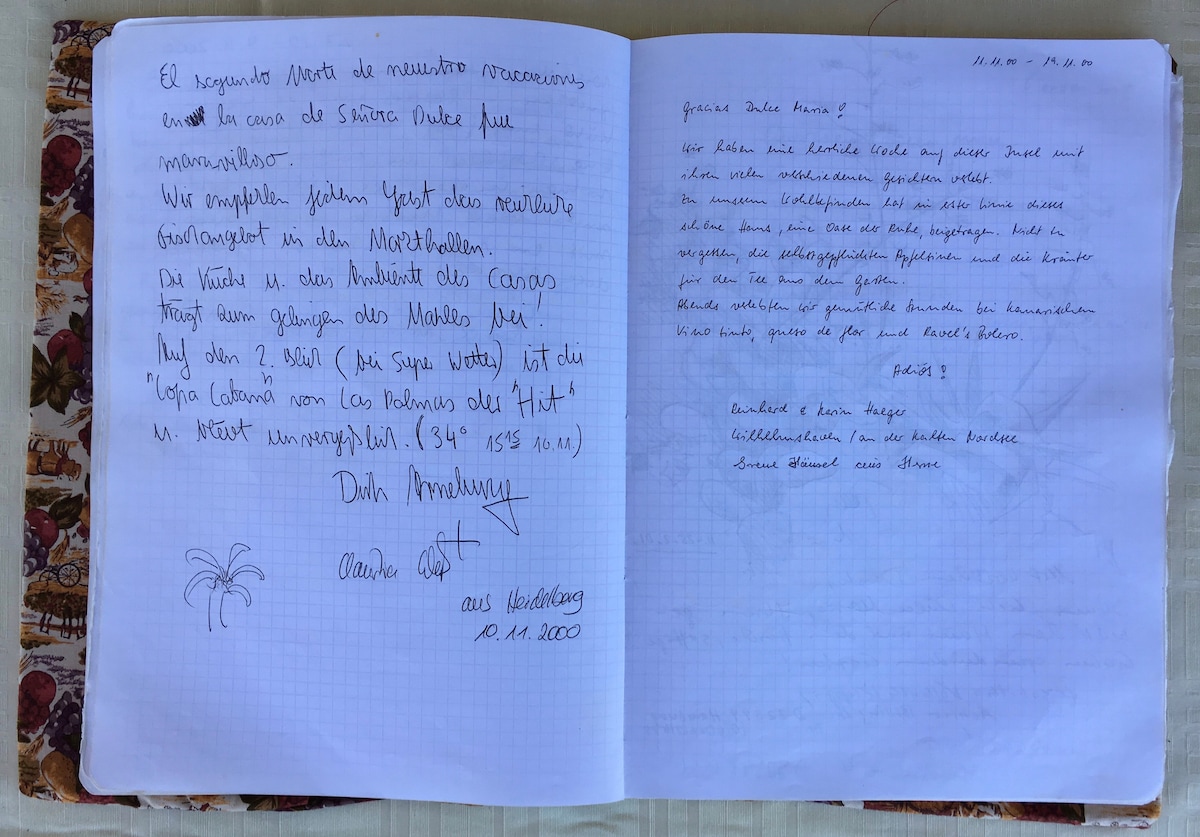 El segundo Morte de neuestro vacaciones
en la casa de Señora Dulce fue
maravilloso.
Wir empfelen jedem Gast das
Fischangebot in den Markthallen.
Die Küche u. das Ambiente des Casas
trägt zum gelingen des Mahles bei!
Auf den 2. Blick (bei Super Wetter) ist die
"Copa Cabana" von Las Palmas der "Hit"
u. bleibt unvergeßlich. (34° 15 15 10.11.)
Dirk
Claudia
aus Heidelberg
10.11.2000
11.11.00 - 19.11.00
Gracias Dulce Maria!
Wir haben eine herrliche Woche auf dieser Insel mit
ihren vielen verschiedenen Gesichtern verlebt.
Zu unserem Wohlbefinden hat in erster Linie dieses
schöne Haus, eine Oase der Ruhe, beigetragen. Nicht zu
vergessen, die selbstgepflückten Apfelsinen und die Kräuter
für den Tee aus dem Garten.
Abends verlebten wir gemütliche Stunden bei kanarischem
Vino tinto, queso de flor und Ravel's Bolero.
Adiós!
Reinhard & Karin Haeger
Wilhelmshaven / an der kalten Nordsee
Häusel aus